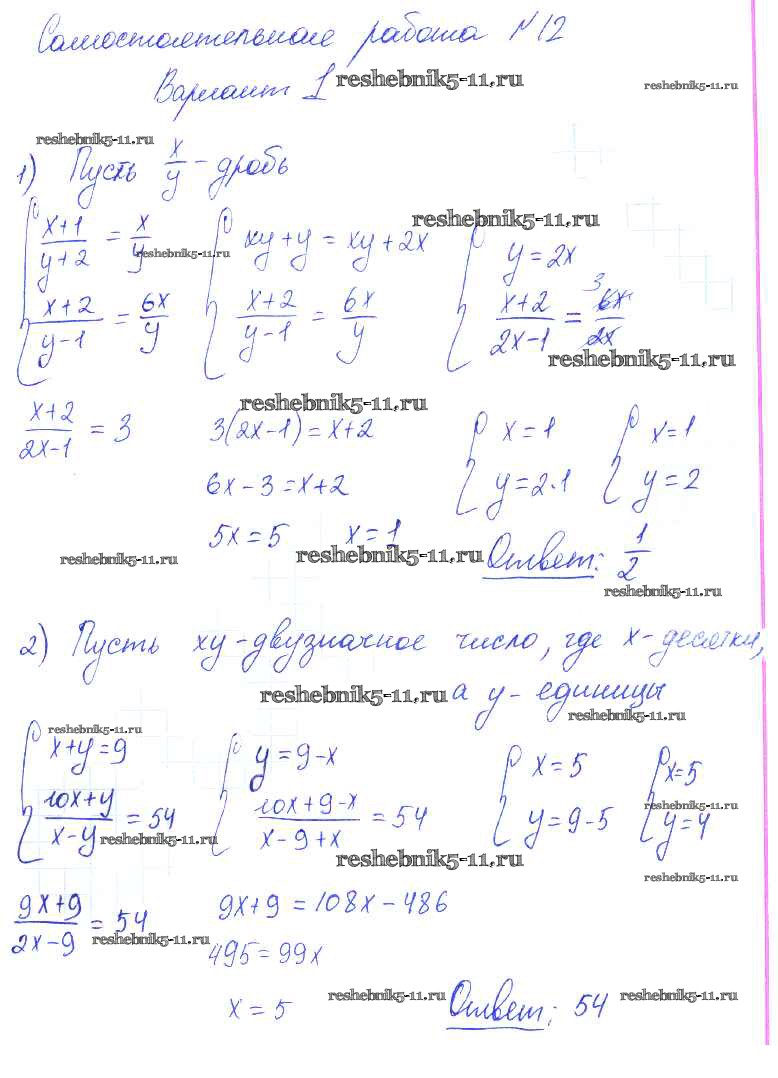 Самостоятельная работа №12
Вариант 1 reshebnik5-11.ru reshebnik5-11.ru
reshebnik5-11.ru
1) Пусть x/y - дробь
reshebnik5-11.ru
{ (x+1)/(y+2) = x/y { xy+y = xy+2x { y = 2x
reshebnik5-11.ru
(x+2)/(y-1) = 6x/y (x+2)/(y-1) = 6x/y (x+2)/(2x-1) = 6x/2x 3
reshebnik5-11.ru
reshebnik5-11.ru
(x+2)/(2x-1) = 3 3(2x-1) = x+2 { x=1 { x=1
6x-3 = x+2 y=2·1 y=2
5x = 5 x = 1
reshebnik5-11.ru reshebnik5-11.ru Ответ: 1/2
reshebnik5-11.ru
2) Пусть xy - двузначное число, где x - десятки,
reshebnik5-11.ru а y - единицы
reshebnik5-11.ru reshebnik5-11.ru
{ x+y = 9 { y = 9-x { x = 5 { x=5
reshebnik5-11.ru
(10x+y)/(x-y) = 54 (10x+9-x)/(x-9+x) = 54 y = 9-5 y=4
reshebnik5-11.ru
reshebnik5-11.ru
reshebnik5-11.ru
(9x+9)/(2x-9) = 54 9x+9 = 108x - 486
reshebnik5-11.ru
495 = 99x
x = 5 reshebnik5-11.ru Ответ: 54 reshebnik5-11.ru